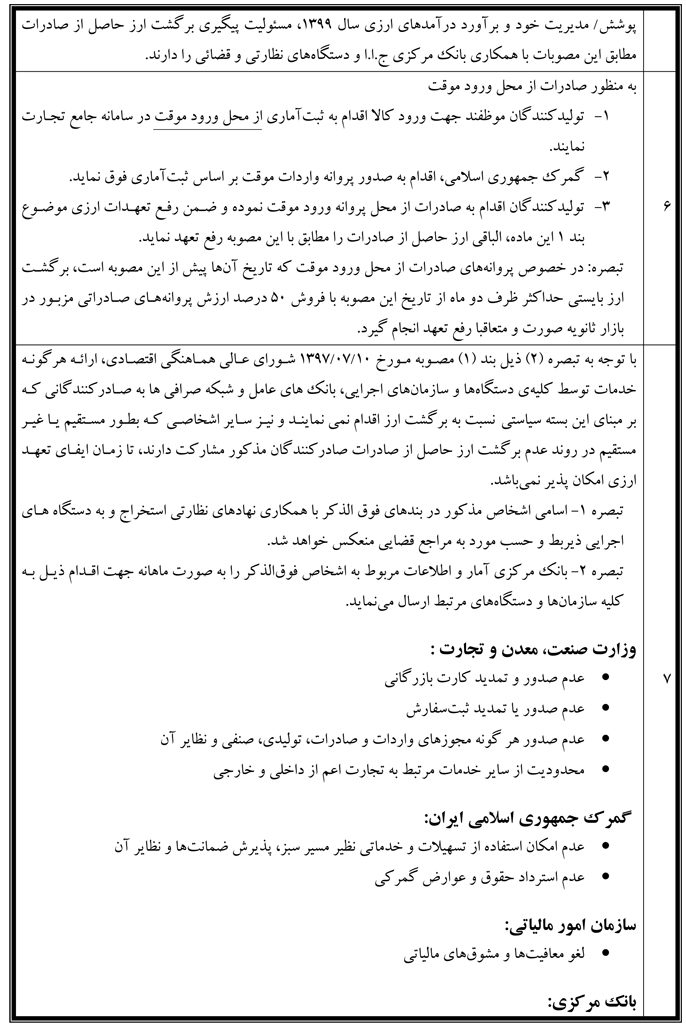 پوشش/ مدیریت خود و برآورد درآمدهای ارزی سال ۱۳۹۹، مسئولیت پیگیری برگشت ارز حاصل از صادرات
مطابق این مصوبات با همکاری بانک مرکزی ج.ا.ا و دستگاه‌های نظارتی و قضائی را دارند.
به منظور صادرات از محل ورود موقت
۱- تولیدکنندگان موظفند جهت ورود کالا اقدام به ثبت‌آماری از محل ورود موقت در سامانه جامع تجارت
نمایند.
۲- گمرک جمهوری اسلامی، اقدام به صدور پروانه واردات موقت بر اساس ثبت‌آماری فوق نماید.
۶
۳- تولیدکنندگان اقدام به صادرات از محل پروانه ورود موقت نموده و ضمن رفع تعهدات ارزی موضوع
بند ۱ این ماده، الباقی ارز حاصل از صادرات را مطابق با این مصوبه رفع تعهد نماید.
تبصره: در خصوص پروانه‌های صادرات از محل ورود موقت که تاریخ آن‌ها پیش از این مصوبه است، برگشت
ارز بایستی حداکثر ظرف دو ماه از تاریخ این مصوبه با فروش ۵۰ درصد ارزش پروانه‌های صادراتی مزبور در
بازار ثانویه صورت و متعاقبا رفع تعهد انجام گیرد.
با توجه به تبصره (۲) ذیل بند (۱) مصوبه مورخ ۱۳۹۷/۰۷/۱۰ شورای عالی هماهنگی اقتصادی، ارائه هرگونه
خدمات توسط کلیه‌ی دستگاه‌ها و سازمان‌های اجرایی، بانک های عامل و شبکه صرافی ها به صادرکنندگانی که
بر مبنای این بسته سیاستی نسبت به برگشت ارز اقدام نمی نمایند و نیز سایر اشخاصی که بطور مستقیم یا غیر
مستقیم در روند عدم برگشت ارز حاصل از صادرات صادرکنندگان مذکور مشارکت دارند، تا زمان ایفای تعهد
ارزی امکان پذیر نمی‌باشد.
تبصره ۱- اسامی اشخاص مذکور در بندهای فوق الذکر با همکاری نهادهای نظارتی استخراج و به دستگاه های
اجرایی ذیربط و حسب مورد به مراجع قضایی منعکس خواهد شد.
تبصره ۲- بانک مرکزی آمار و اطلاعات مربوط به اشخاص فوق‌الذکر را به صورت ماهانه جهت اقدام ذیل به
کلیه سازمان‌ها و دستگاه‌های مرتبط ارسال می‌نماید.
وزارت صنعت، معدن و تجارت :
۷
• عدم صدور و تمدید کارت بازرگانی
• عدم صدور یا تمدید ثبت‌سفارش
• عدم صدور هر گونه مجوزهای واردات و صادرات، تولیدی، صنفی و نظایر آن
• محدودیت از سایر خدمات مرتبط به تجارت اعم از داخلی و خارجی
گمرک جمهوری اسلامی ایران:
• عدم امکان استفاده از تسهیلات و خدماتی نظیر مسیر سبز، پذیرش ضمانت‌ها و نظایر آن
• عدم استرداد حقوق و عوارض گمرکی
سازمان امور مالیاتی:
• لغو معافیت‌ها و مشوق‌های مالیاتی
بانک مرکزی: